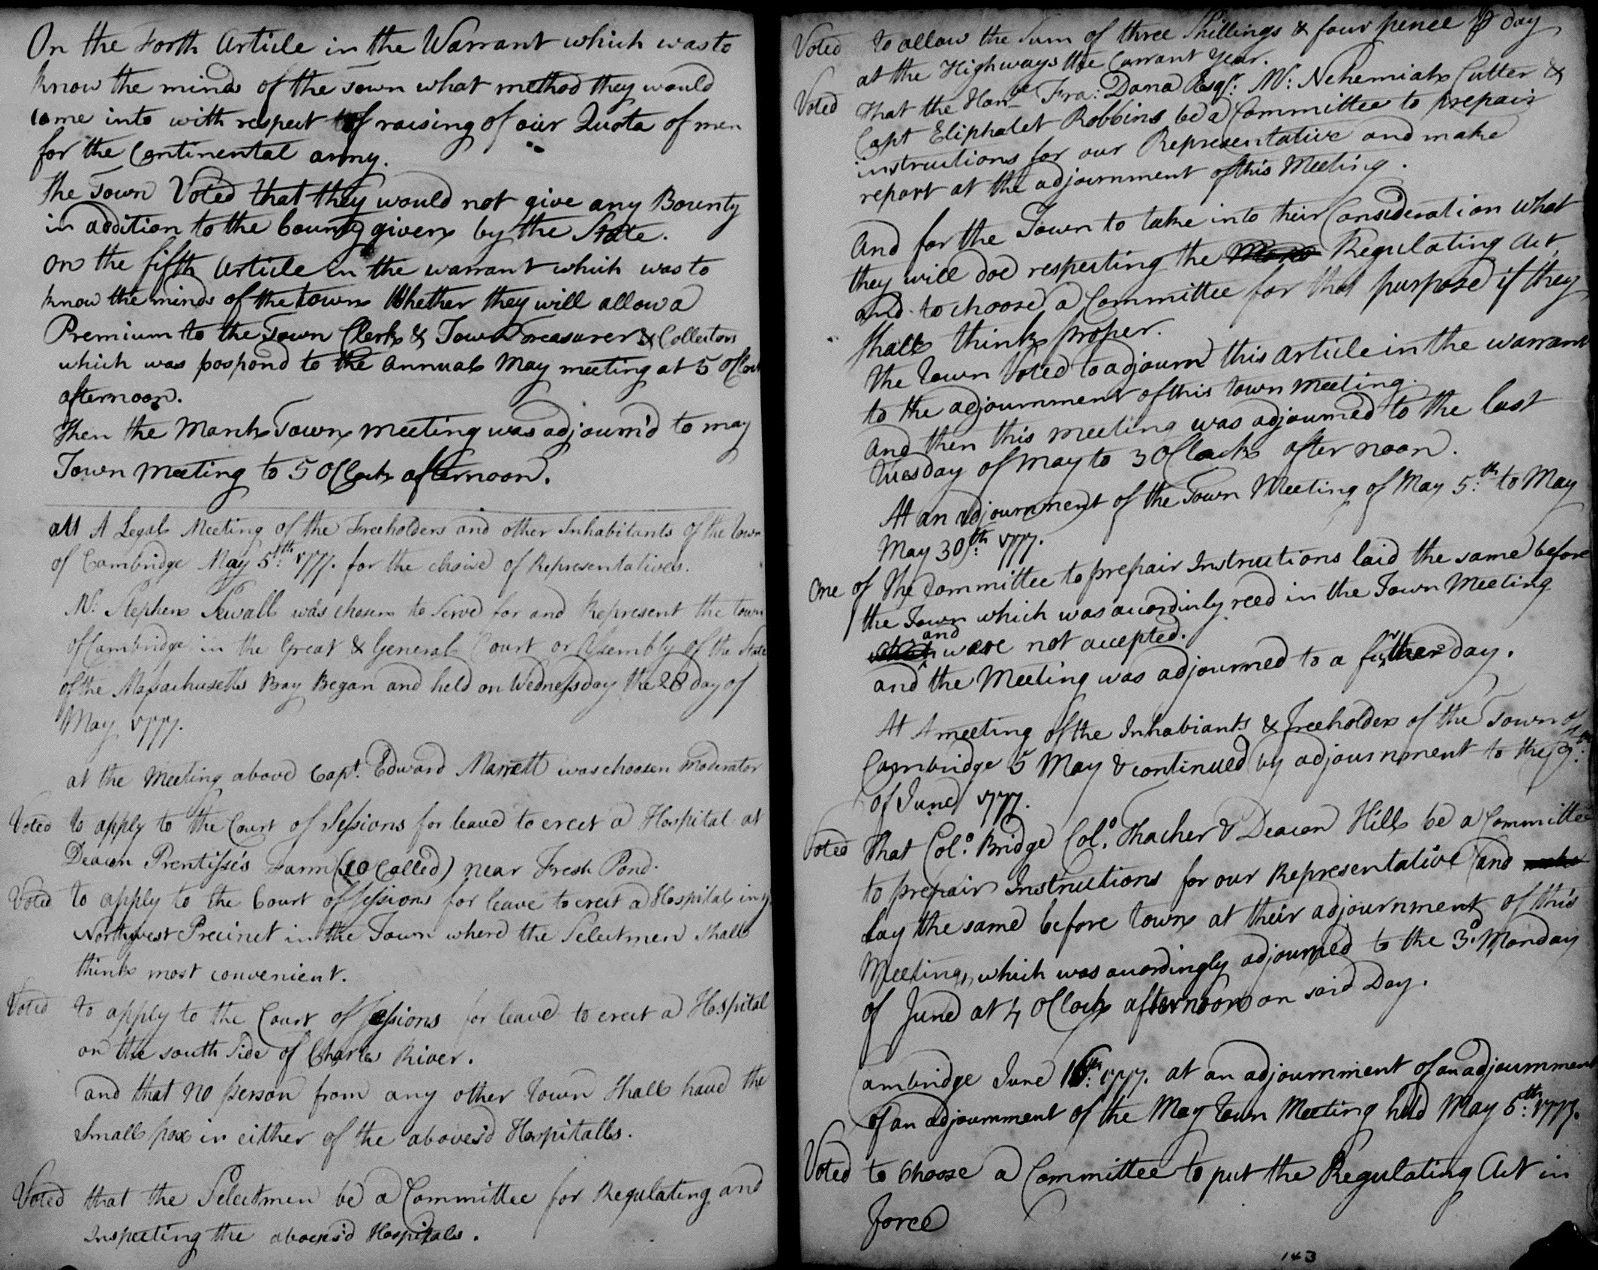 On the Forth Article in the Warrant which was to
know the minds of the Town what method they would
come into with respect of raising of our Quota of men
for the Continental army.
the Town Voted that they would not give any Bounty
in addition to the bounty given by the State.
on the fifth Article in the warrant which was to
know the minds of the town Whether they will allow a
Premium to the Town Clerk & Town Treasurer & Collectors
which was pospond to the annual May meeting at 5 oClock
afternoon.
Then the March Town meeting was adjourn'd to may
Town meeting to 5 oClock afternoon.
att A Legal Meeting of the Freeholders and other Inhabitants of the town
of Cambridge May 5th: 1777. for the choice of Representatives.
Mr. Stephen Sewall was chosen to Serve for and Represent the town
of Cambridge in the Great & General Court or Assembly of the State
of the Massachusetts Bay Began and held on Wednessday the 28 day of
May 1777.
at the Meeting above Capt. Edward Marrett was choosen Moderator
Voted to apply to the Court of Sessions for leave to erect a Hospital at
Deacon Prentisse's Farm (so Called) near Fresh Pond.
Voted to apply to the Court of Sessions for leave to erect a Hospital in ye
Northwest Precinct in the Town where the Selectmen shall
think most convenient.
Voted to apply to the Court of Sessions for leave to erect a Hospital
on the south Side of Charles River.
and that no person from any other Town Shall have the
Small pox in either of the aboves'd Hospitalls.
Voted that the Selectmen be a Committee for Regulating and
Inspecting the aboves'd Hospitals.
Voted to allow the Sum of three Shillings & four pence ⅌ day
at the Highways the Currant Year.
Voted that the Honble Fra: Dana Esqr: Mr: Nehemiah Cutter &
Capt Eliphalet Robbins be a Committee to prepair
instructions for our Representative and make
report at the adjournment of this Meeting.
and for the Town to take into their Consideration what
they will doe respecting the Regulating Act
and to choose a Committee for that purpose if they
shall think proper.
the Town Voted to adjourn this article in the warrant
to the adjournment of this town meeting.
and then this meeting was adjourned to the last
Tuesday of May to 3 oClock after noon.
At an adjournment of the Town Meeting of May 5th: to May
May 30th: 1777.
one of the Committee to prepair Instructions laid the same before
the Town which was acordinly reed in the Town Meeting
and were not accepted.
and the Meeting was adjourned to a further day.
At A meeting of the Inhabiants & Freeholders of the Town of
Cambridge 5 May & continued by adjournment to the 9th:
of June 1777.
Voted that Colo. Bridge Colo. Thacher & Deacon Hill be a Committee
to prepair Instructions for our Representative and
Lay the same before town at their adjournment of this
Meeting, which was acordingly adjourned to the 3d. Monday
of June at 4 oClock afternoon on said Day.
Cambridge June 16th: 1777. at an adjournment of an adjournment
of an adjournment of the May Town Meeting held May 5th: 1777.
Voted to Choose a Committee to put the Regulating Act in
force
143